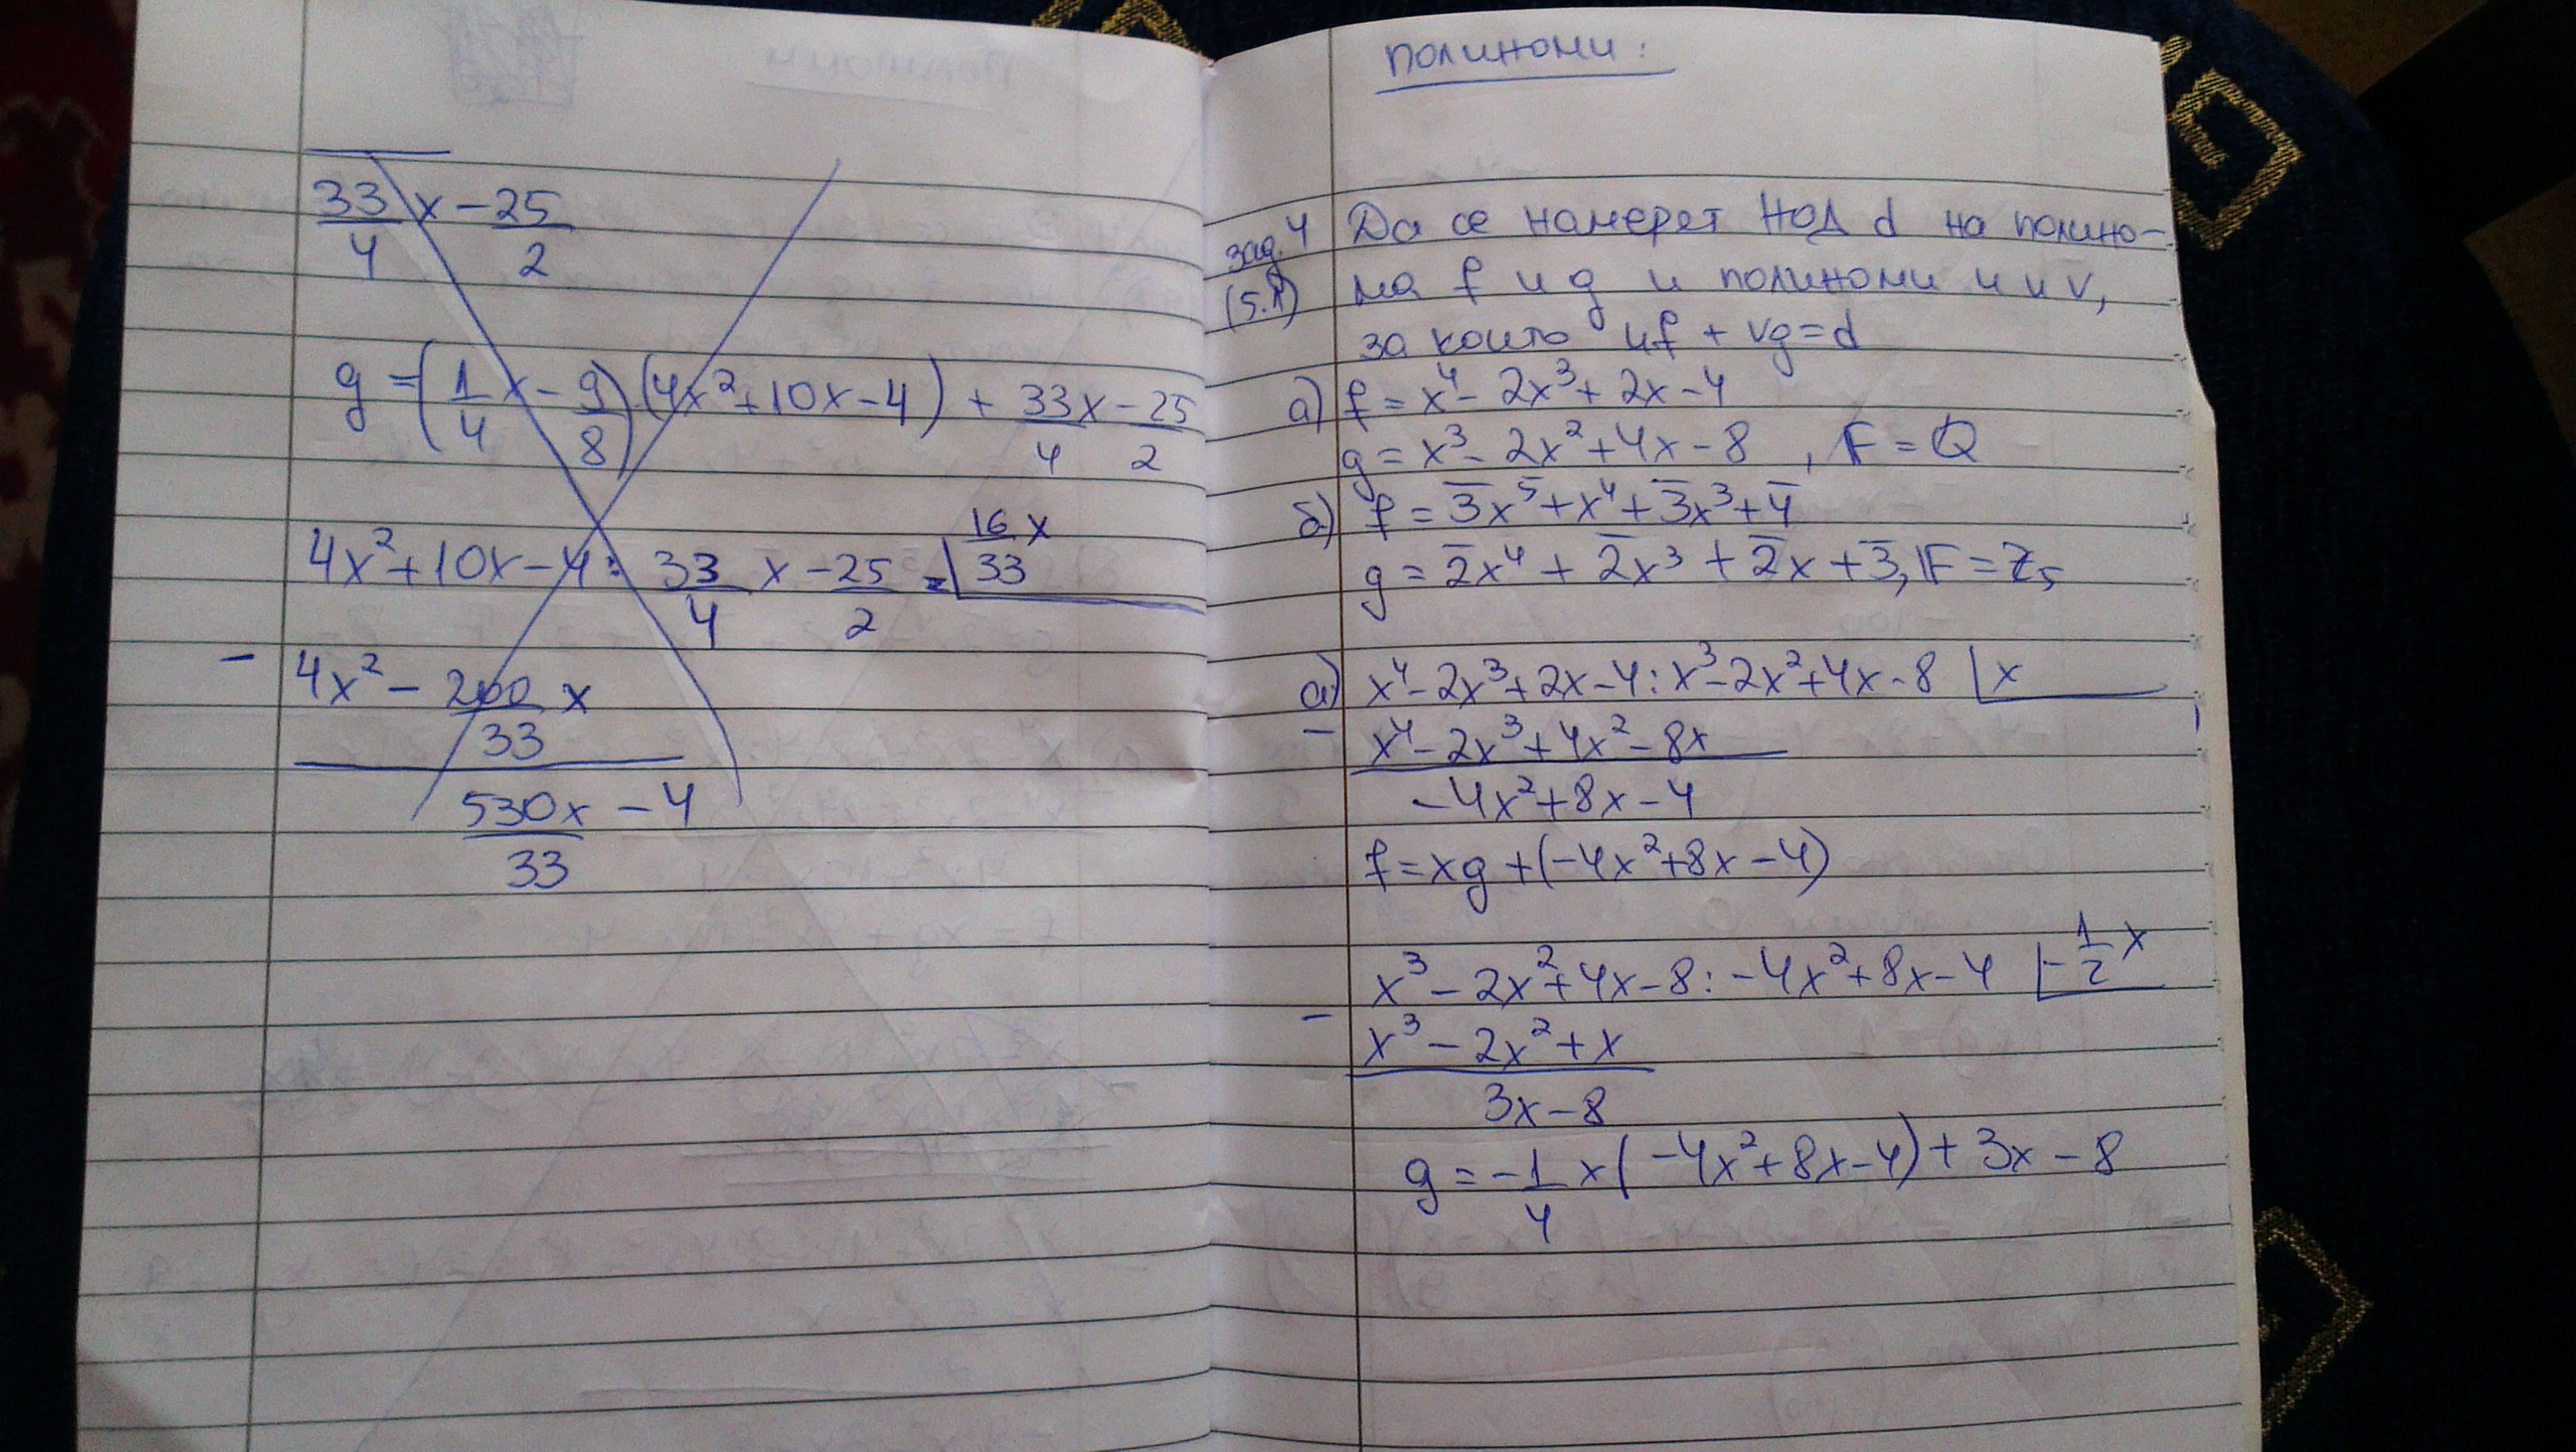 33/4 x - 25/2
g = (1/4 x - 9/8) (4x² + 10x - 4) + 33x/4 - 25/2
4x² + 10x - 4 : 33/4 x - 25/2 = 16/33 x
- 4x² - 200/33 x
530x/33 - 4
полиноми:
зад. 4 Да се намерет НОД d на полино-
(5.1) ма f и g и полиноми u и v,
за които uf + vg = d
а) f = x⁴ - 2x³ + 2x - 4
g = x³ - 2x² + 4x - 8 , F = Q
б) f = 3̅x⁵ + x⁴ + 3̅x³ + 4̅
g = 2̅x⁴ + 2̅x³ + 2̅x + 3̅, F = Z₅
а) x⁴ - 2x³ + 2x - 4 : x³ - 2x² + 4x - 8 | x
- x⁴ - 2x³ + 4x² - 8x
-4x² + 8x - 4
f = xg + (-4x² + 8x - 4)
x³ - 2x² + 4x - 8 : -4x² + 8x - 4 | -1/2 x
- x³ - 2x² + x
3x - 8
g = -1/4 x (-4x² + 8x - 4) + 3x - 8